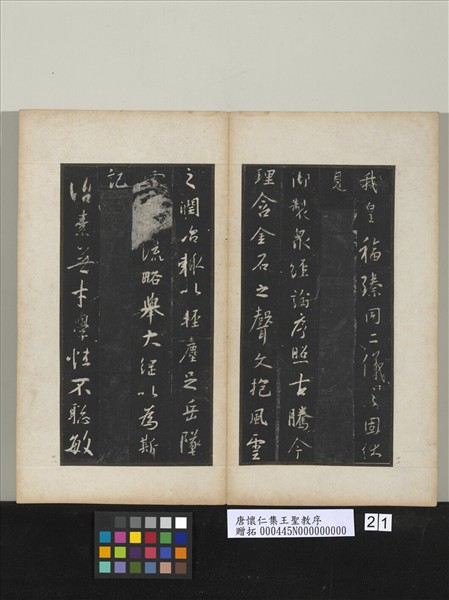 我皇福臻同二儀之固伏
見
御製眾經論序照古騰今
理含金石之聲文抱風雲
之潤治輒以輕塵足岳墜
流略舉大綱以為斯
記
治素無才學性不聰敏
唐懷仁集王聖教序
贈拓 000445N000000000
21